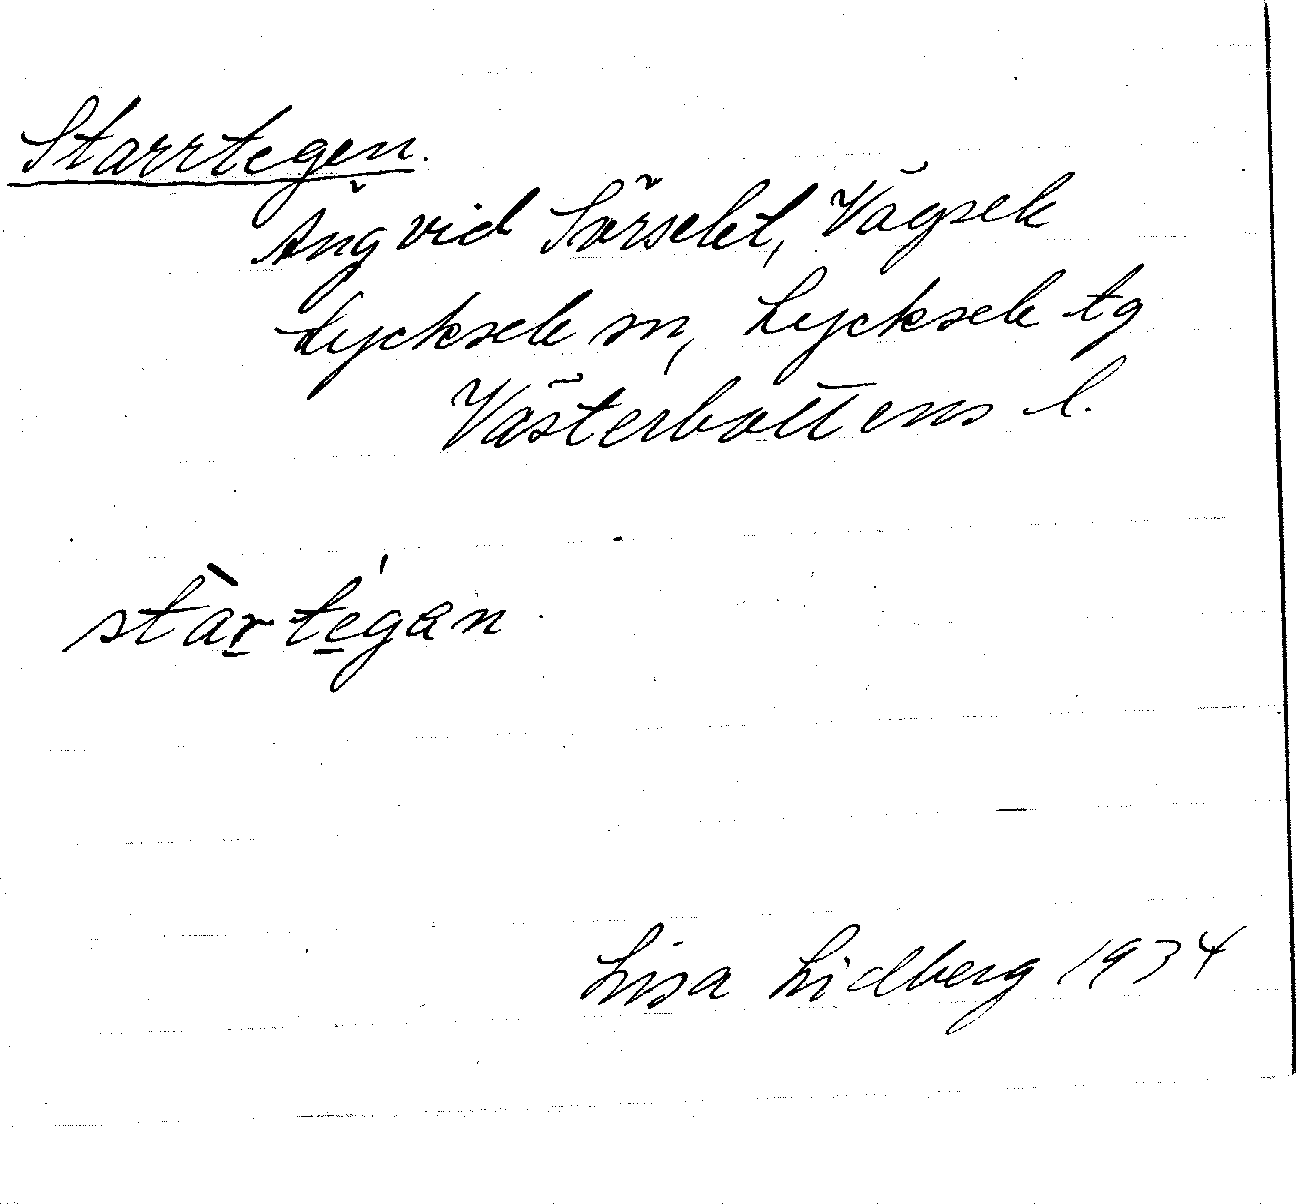 Starrtegen.
Äng vid Sörselet, Vägsele
Lycksele sn, Lycksele tg
Västerbottens l.
stàrtégan
Lisa Lidberg 1934